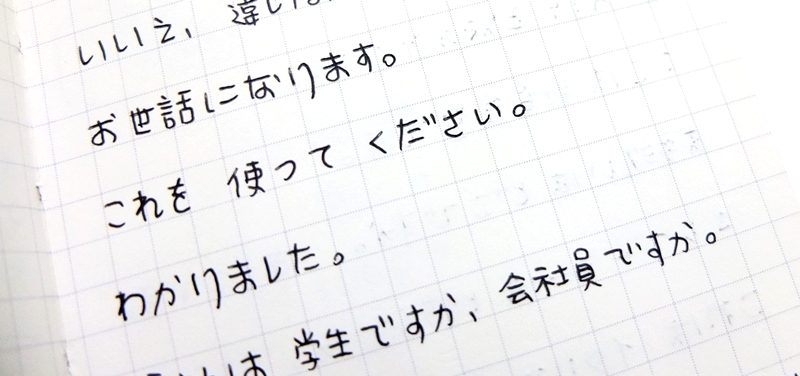 いいえ、違い
お世話になります。
これを 使って ください。
わかりました。
は 学生ですか、会社員ですか。